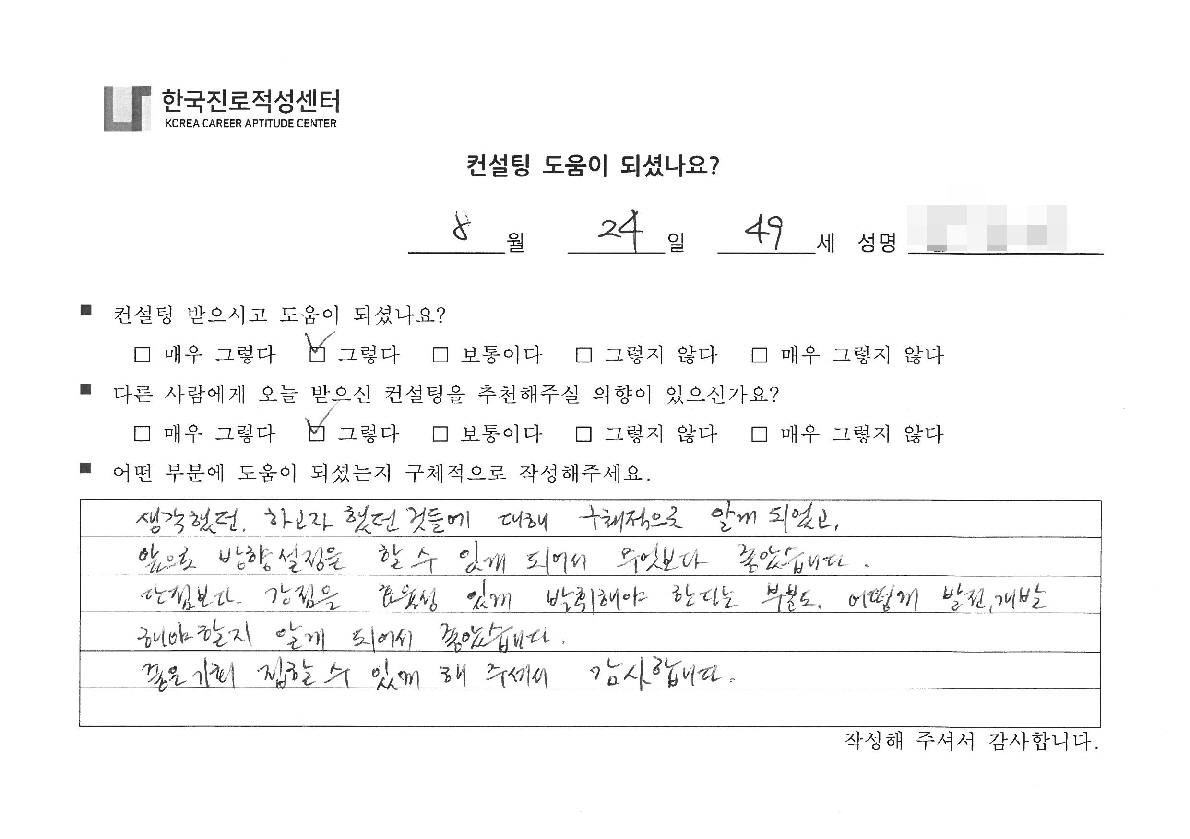 한국진로적성센터
KOREA CAREER APTITUDE CENTER
컨설팅 도움이 되셨나요?
8 월 24 일 49 세 성명
■ 컨설팅 받으시고 도움이 되셨나요?
□ 매우 그렇다 ☑ 그렇다 □ 보통이다 □ 그렇지 않다 □ 매우 그렇지 않나
■ 다른 사람에게 오늘 받으신 컨설팅을 추천해주실 의향이 있으신가요?
□ 매우 그렇다 ☑ 그렇다 □ 보통이다 □ 그렇지 않다 □ 매우 그렇지 않다
■ 어떤 부분에 도움이 되셨는지 구체적으로 작성해주세요.
생각했던, 하고자 했던 것들에 대해 구체적으로 알게 되었고,
앞으로 방향설정을 할 수 있게 되어서 무엇보다 좋았습니다.
단점보다 강점을 효율성 있게 발휘해야 한다는 부분도, 어떻게 발전, 개발
해야할지 알게 되어서 좋았습니다.
좋은 기회 접할 수 있게 해 주셔서 감사합니다.
작성해 주셔서 감사합니다.